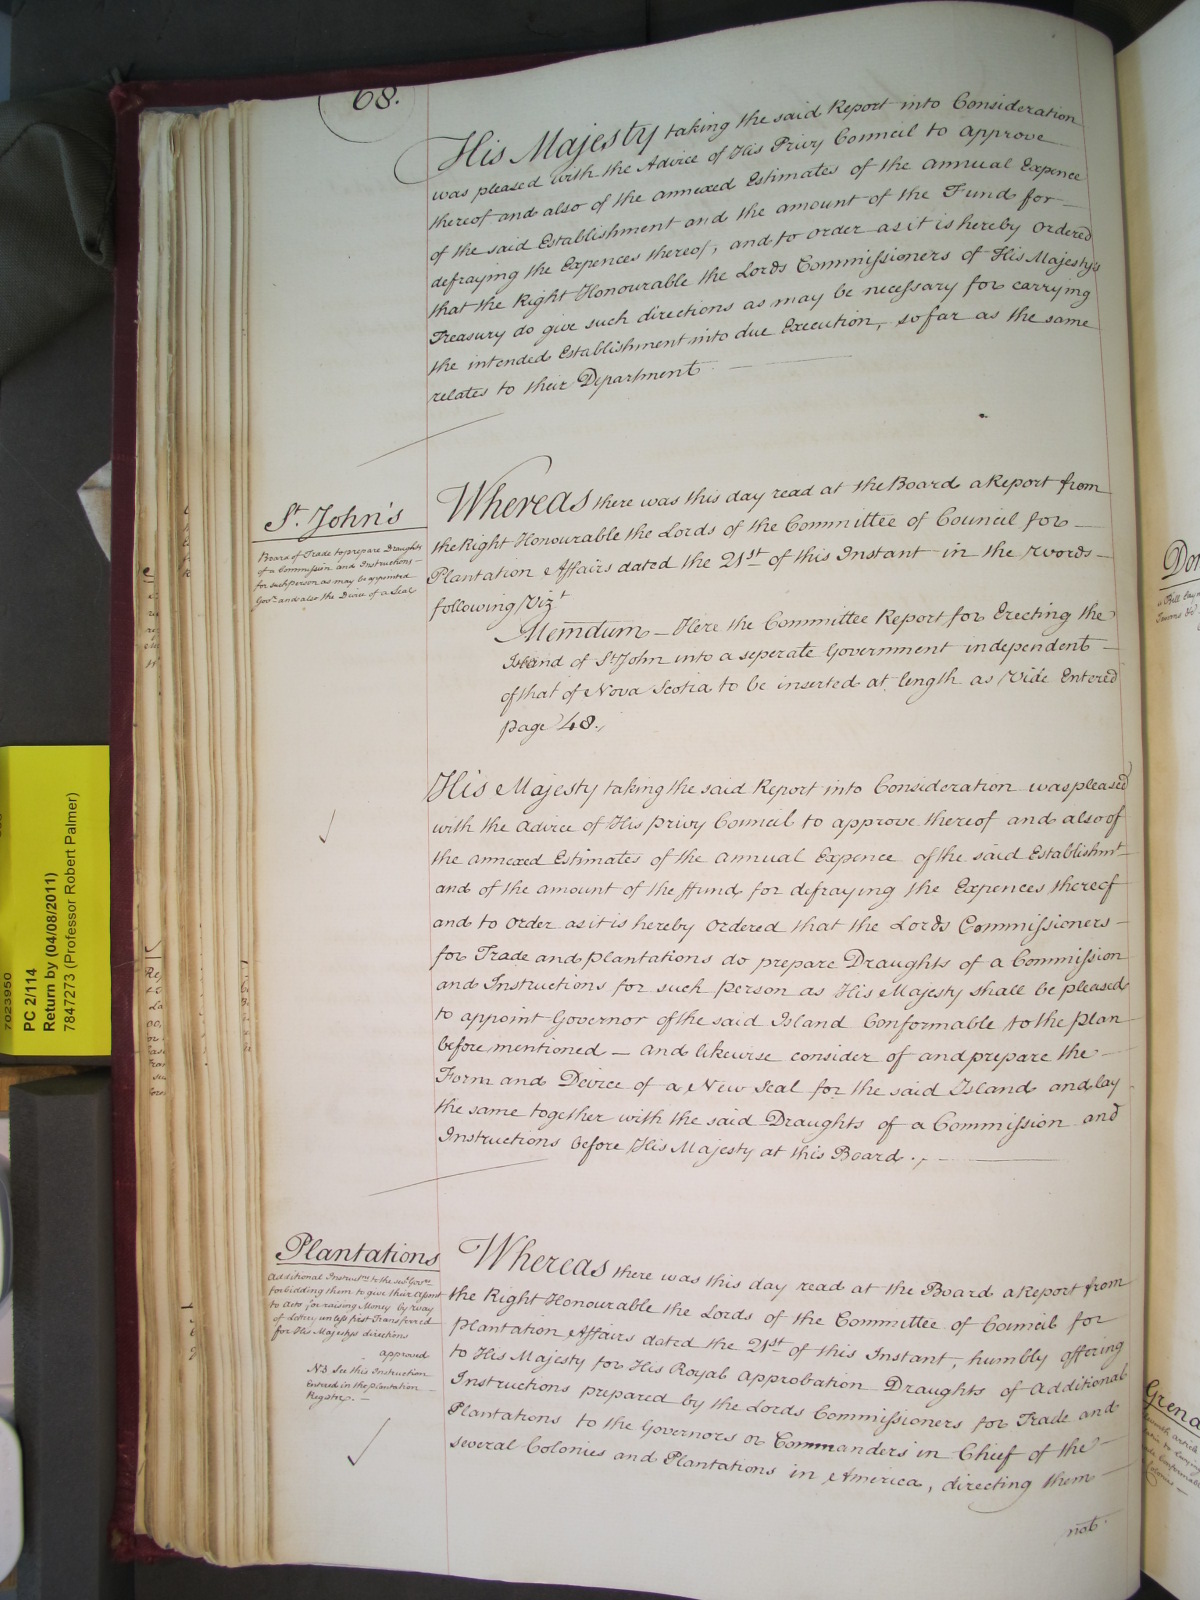 68.
His Majesty taking the said Report into Consideration
was pleased with the Advice of His Privy Council to approve
thereof and also of the annexed Estimates of the annual Expence
of the said Establishment and the amount of the Fund for
defraying the Expences thereof, and to order as it is hereby Ordered
that the Right Honourable the Lords Commissioners of His Majesty's
Treasury do give such directions as may be necessary for carrying
the intended Establishment into due Execution, so far as the same
relates to their Department
St. John's
Board of Trade to prepare Draughts
of a Commission and Instructions
for such person as may be appointed
Govr. and also the Device of a Seal
Whereas there was this day read at the Board a Report from
the Right Honourable the Lords of the Committee of Council for
Plantation Affairs dated the 21st of this Instant in the words
following Vizt
Memdum — Here the Committee Report for Erecting the
Island of St John into a seperate Government independent
of that of Nova Scotia to be inserted at length as Vide Entered
page 48.
His Majesty taking the said Report into Consideration was pleased
with the Advice of His privy Council to approve thereof and also of
the annexed Estimates of the annual Expence of the said Establishmt
and of the amount of the ffund for defraying the Expences thereof
and to Order as it is hereby Ordered that the Lords Commissioners
for Trade and plantations do prepare Draughts of a Commission
and Instructions for such person as His Majesty shall be pleased
to appoint Governor of the said Island Conformable to the plan
before mentioned — and likewise consider of and prepare the
Form and Device of a New Seal for the said Island and lay
the same together with the said Draughts of a Commission and
Instructions before His Majesty at this Board.
Plantations
Additional Instructns to the sevl Govrs
forbidding them to give their assent
to Acts for raising Money by way
of Lottery unless first Transferred
for His Majestys directions
approved
NB See this Instruction
Entered in the plantation
Register. —
Whereas there was this day read at the Board a Report from
the Right Honourable the Lords of the Committee of Council for
plantation Affairs dated the 21st of this Instant, humbly offering
to His Majesty for His Royal approbation Draughts of Additional
Instructions prepared by the Lords Commissioners for Trade and
Plantations to the Governors or Commanders in Chief of the
several Colonies and Plantations in America, directing them
not
7023950
PC 2/114
Return by (04/08/2011)
7847273 (Professor Robert Palmer)